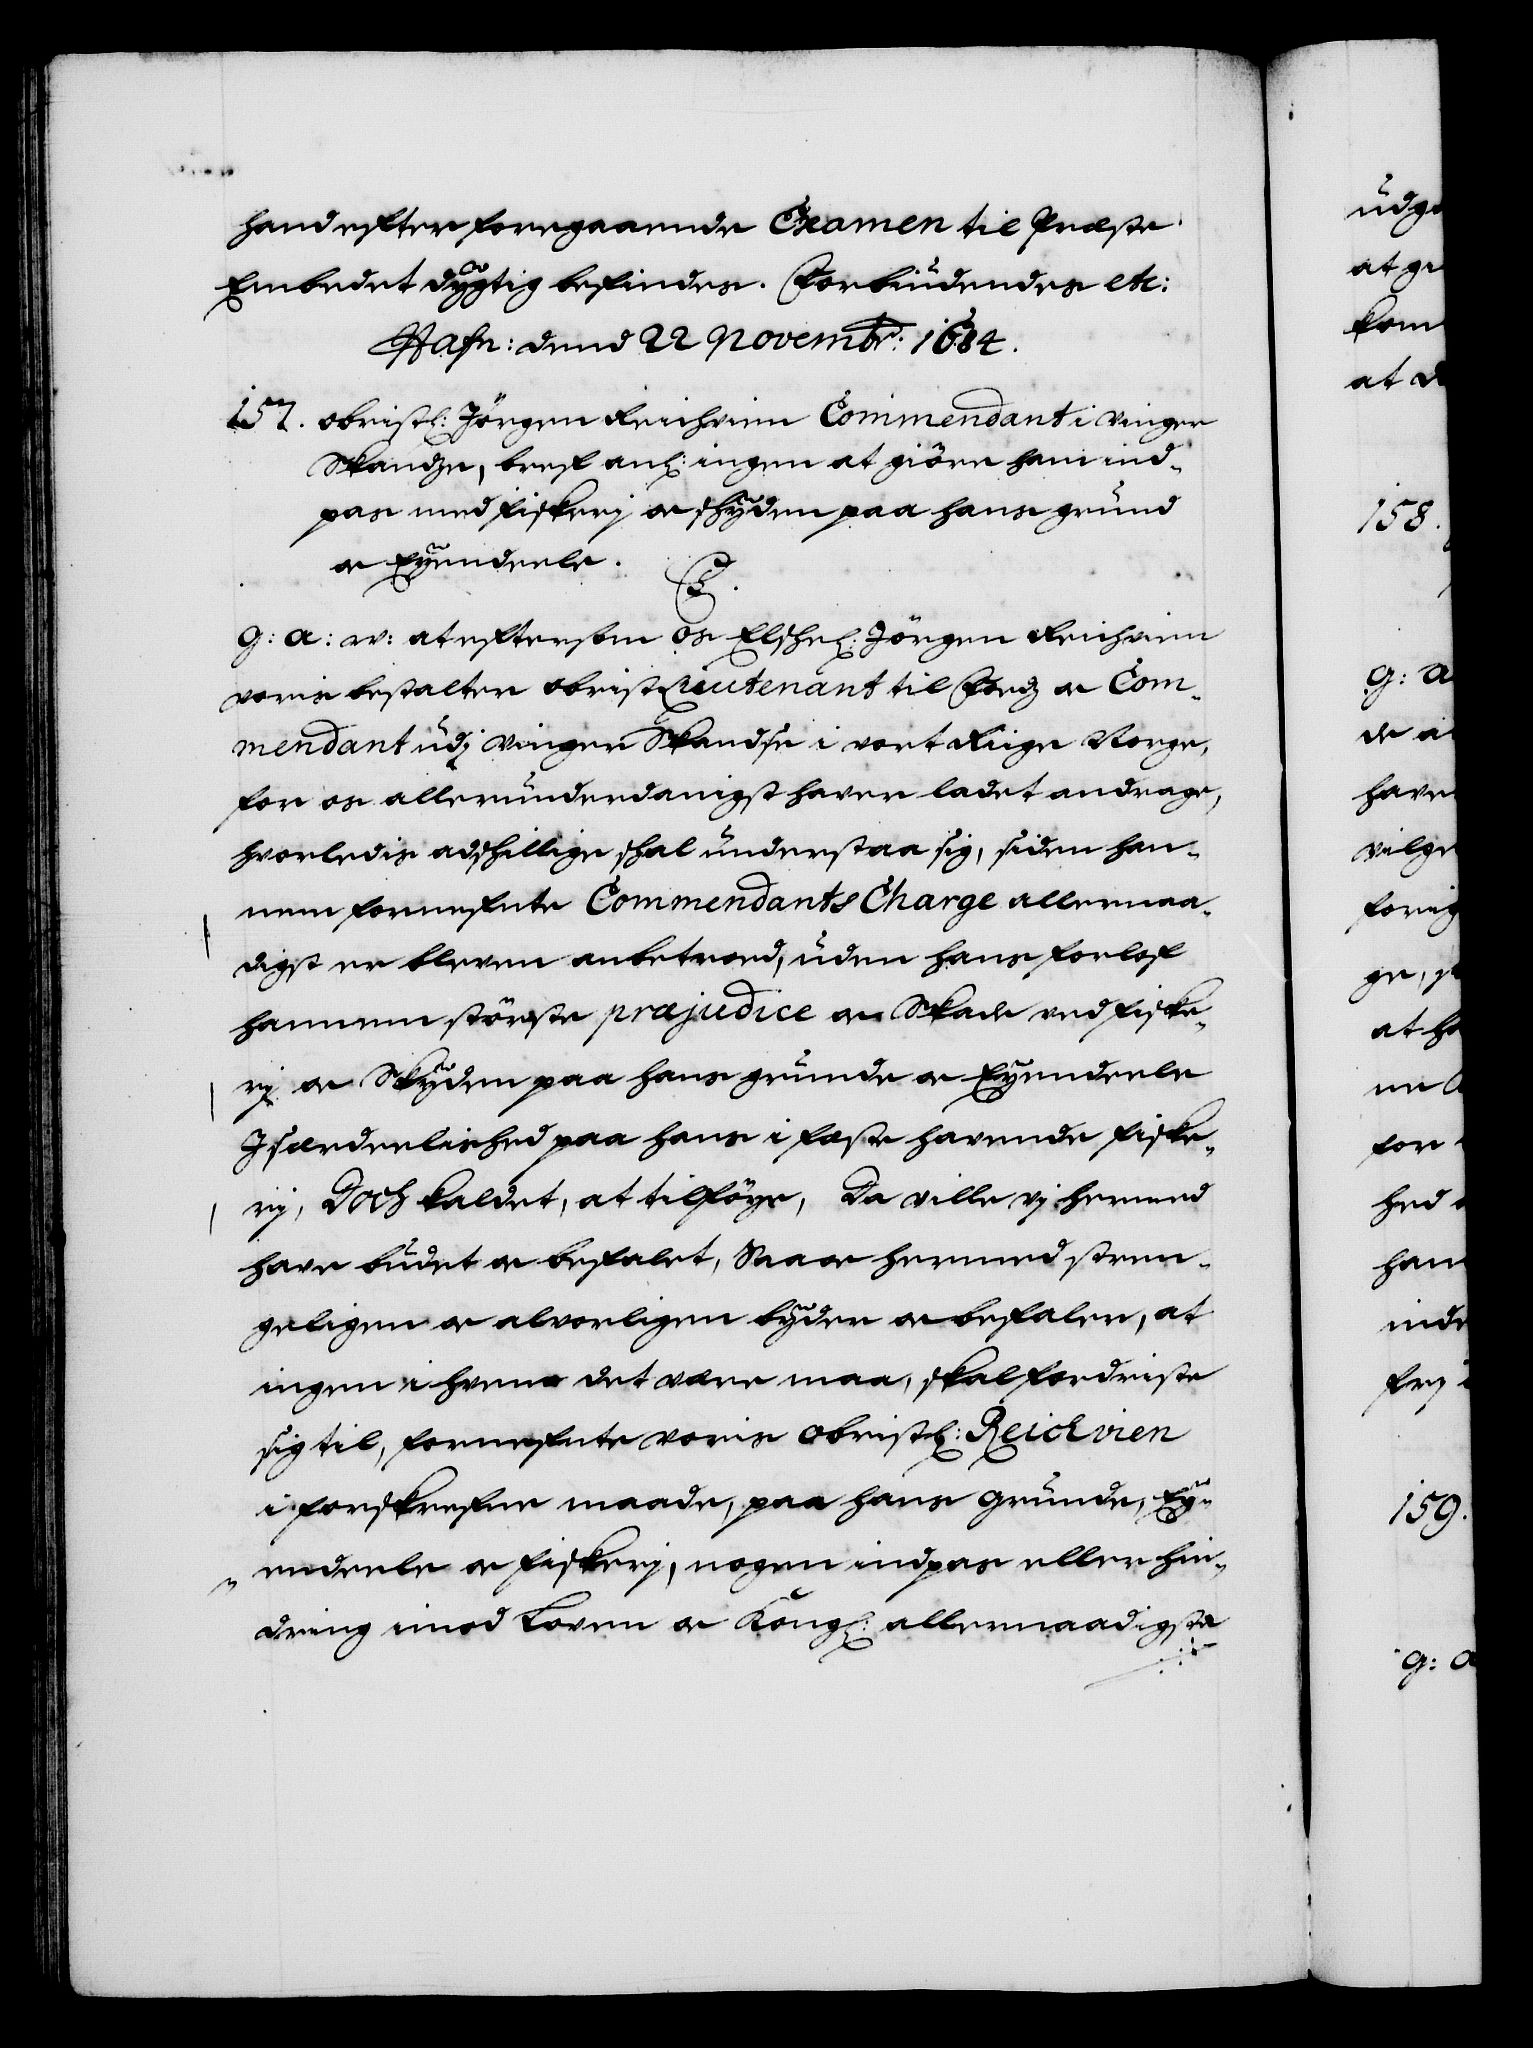 hand efter foregaaende Examen til Præste
Embedet dygtig befindes. Forbiudendes etc:
Hafn: dend 22 Novembr: 1684.
157. Obristl: Jörgen Reichvien Commendant i Vinger
Skandze, bref anl: ingen at giöre ham ind-
pas med fiskerj oc skÿden paa hans grund
oc Eÿendeele.
C5.
G: A: V: at eftersom os Elskel: Jörgen Reichvien
voris bestalter ObristLieutenant til Foedz oc Com-
mendant udj Vinger Skandse i vort Riige Norge,
for os allerunderdanigst haver ladet andrage,
hvorledis adskillige skal understaa sig, siden han-
nem formefnte Commendants Charge allernaa-
digst er bleven anbetroed, uden hans forlof
hannem störste præjudice oc Skade ved fiske-
rj oc Skÿden paa hans grunde oc Eÿendeele
Jsærdeelished paa hans i fæste havende fiske-
rij, Doch kaldet, at tilföye, Da ville vj hermed
have budet oc befalet, Saa oc hermed stren-
geligen oc alvorligen bÿder oc befaler, at
ingen i hvem det være maa, skal fordriste
sig til, formefnte voris Obristl: Reichvien
i forskrefne maade, paa hans Grunde, Eÿ-
endeele oc fiskerj, nogen indpas eller hin-
dring imod Loven oc Kongl: allernaadigste
udg
at g
kom
at d
158.
G: A
de a
have
vilge
forig
ge, s
at ha
ne
for
hed
han
inde
frj
159.
G: A